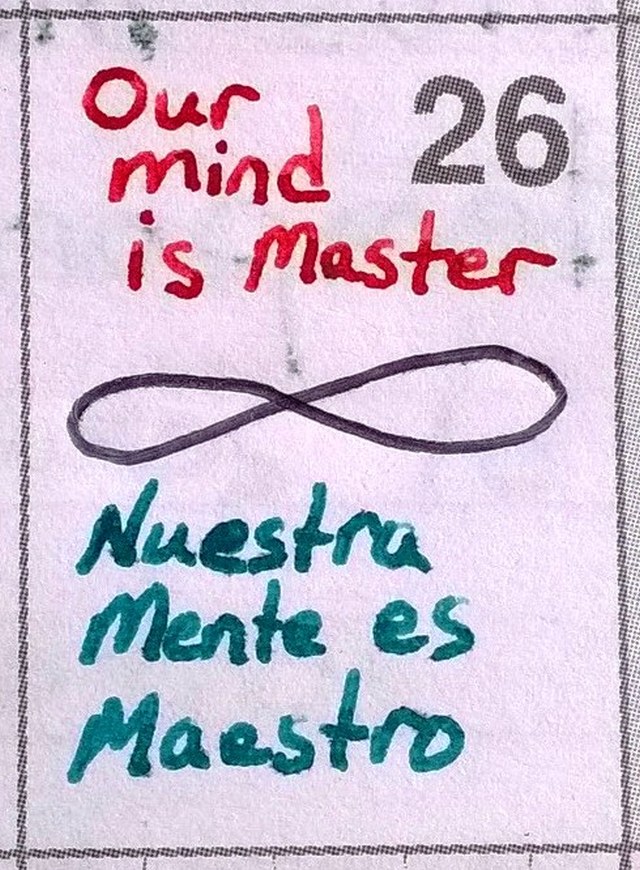 Our
mind
is Master
26
Nuestra
Mente es
Maestro